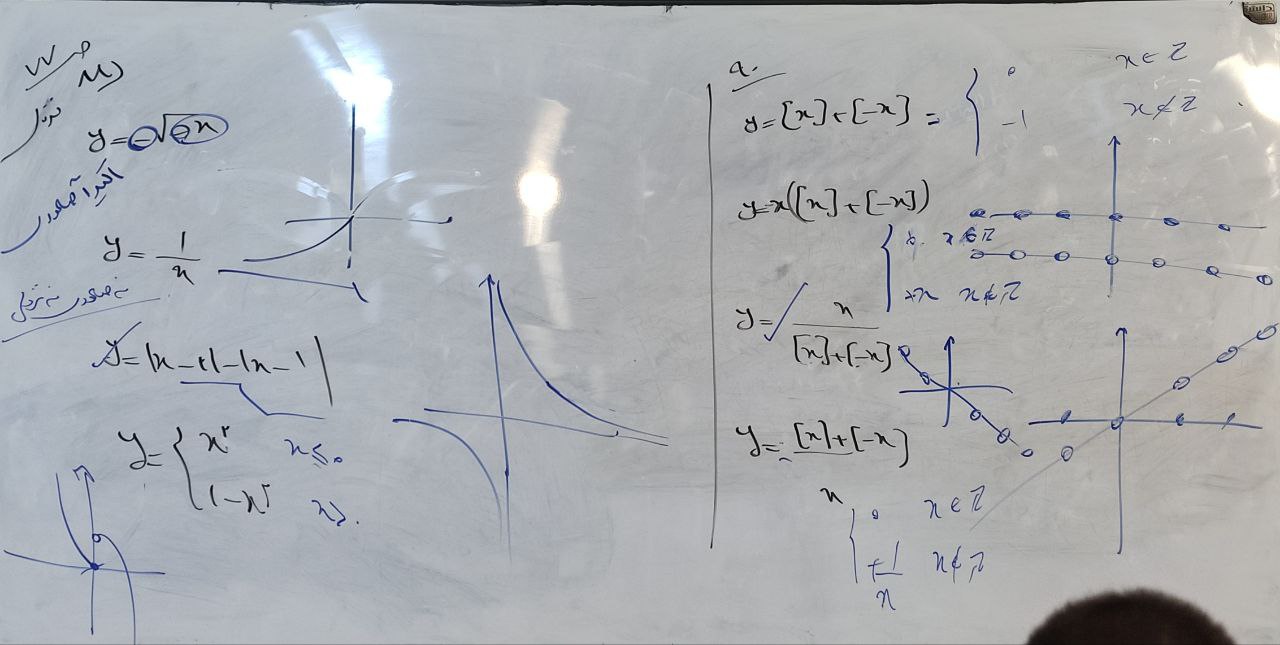 ص ۷۷
y = -√-x
اکیداً صعودی
y = 1/x
نه صعودی نه نزولی
y = |x - 2| - |x - 1|
y = { x² x ≤ 0
1 - x² x > 0
۹۰
y = [x] + [-x] = { 0 x ∈ Z
-1 x ∉ Z
y = x([x] + [-x])
{ 0 x ∈ Z
-x x ∉ Z
y = x / [x] + [-x]
y = [x] + [-x] / x
{ 0 x ∈ Z
-1/x x ∉ Z